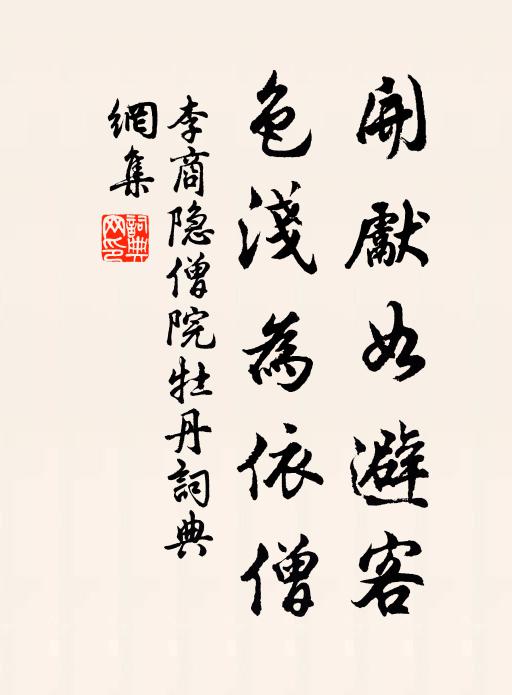 開獻如避客
色淺為依僧
李商隐僧院牡丹詞典
網集
詞典
网印